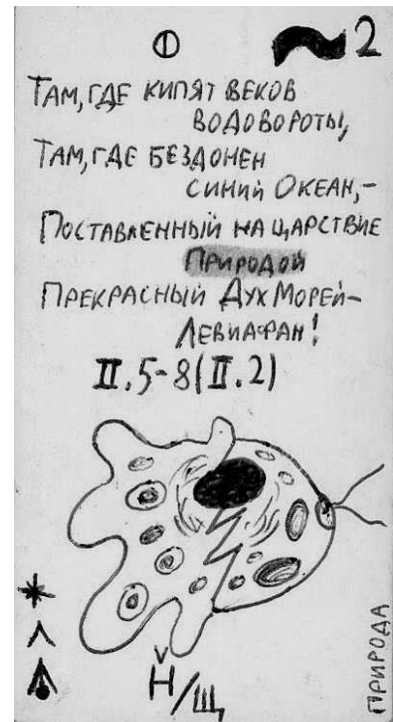 ① 2
ТАМ, ГДЕ КИПЯТ ВЕКОВ
ВОДОВОРОТЫ,
ТАМ, ГДЕ БЕЗДОНЕН
СИНИЙ ОКЕАН,–
ПОСТАВЛЕННЫЙ НА ЦАРСТВИЕ
ПРИРОДОЙ
ПРЕКРАСНЫЙ ДУХ МОРЕЙ–
ЛЕВИАФАН!
II.5-8(II.2)
Н/Щ
ПРИРОДА